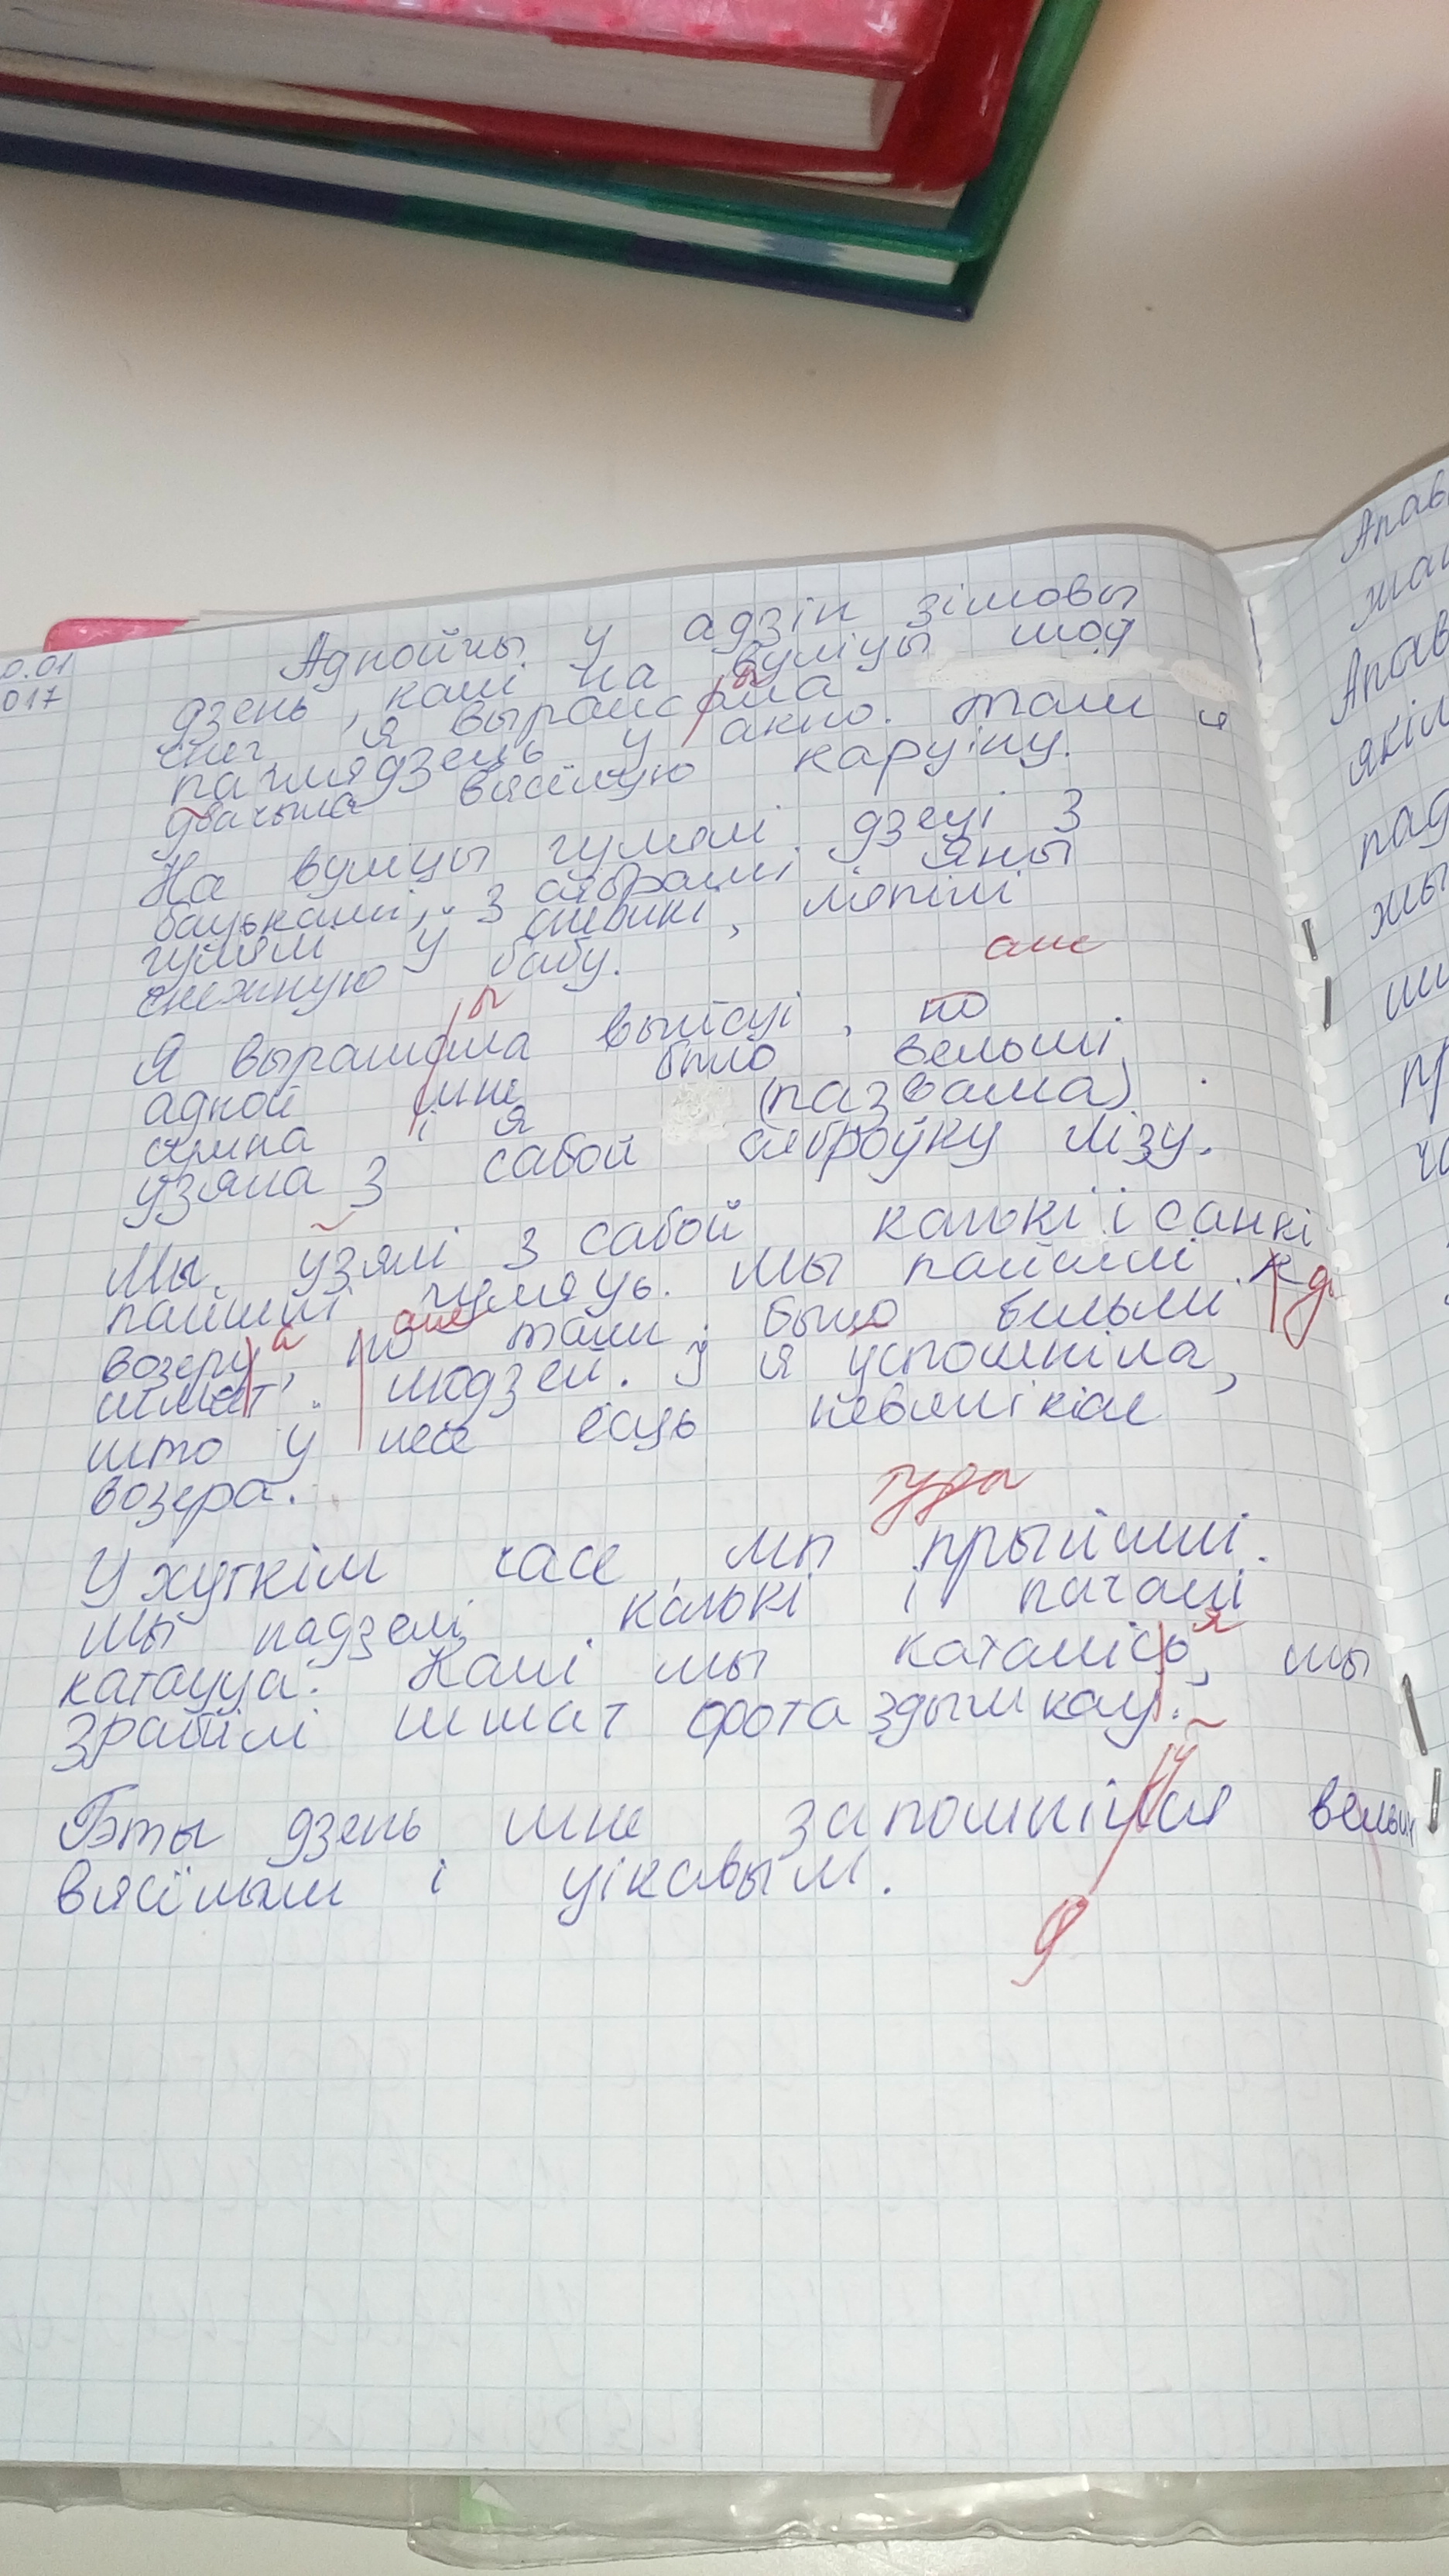 0.01
017
Аднойчы у адзін зімовы
дзень, калі на вуліцы шоў
снег, я вырашыла
паглядзець у акно. там я
убачыла вясёлую карціну.
На вуліцы гулялі дзеці з
бацькамі, з сябрамі Яны
гулялі у снежкі, ляпілі
снежную бабу.
але
Я вырашыла выйсці, но
адной мне было вельмі
сумна і я (пазвала)
узяла з сабой сяброўку Лізу.
Мы узялі з сабой канькі і санкі
пайшлі гуляць. Мы пайшлі к да
возеру а, но але там было вельмі
шмат людзей. І я успомніла,
што у лесе ёсць невялікае
возера.
туды
У хуткім часе мы прыйшлі.
Мы надзелі канькі і пачалі
катацца. Калі мы каталісь я, мы
зрабілі шмат фотаздымкаў.
Гэты дзень мне запомніўся вельмі
вясёлым і цікавым.
9
Апав
Апав
якім
пад
жы